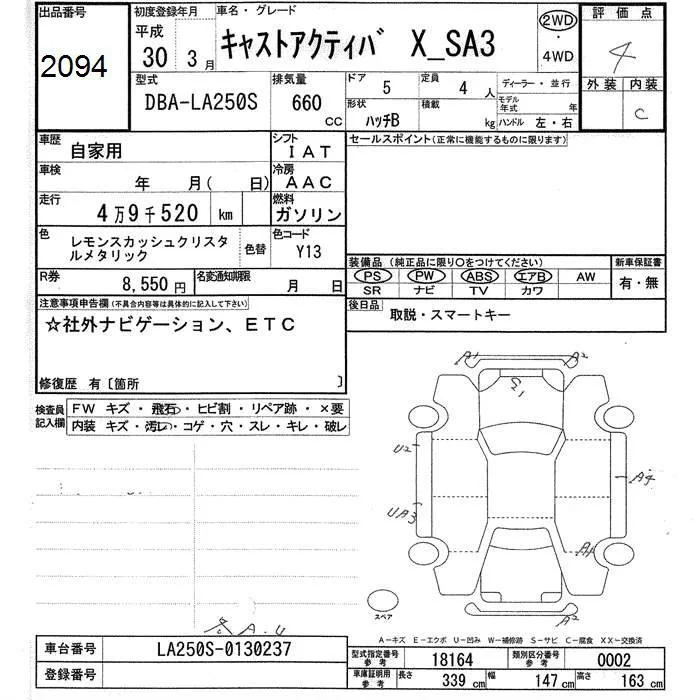 出品番号
2094
初度登録年月
平成
30 3月
車名・グレード
キャストアクティバ X_SA3
2WD
・
4WD
評価点
4
外装 内装
C
型式
DBA-LA250S
排気量
660
cc
ドア
5
定員
4 人
形状
ハッチB
積載
kg
ディーラー・並行
モデル
年式 年
ハンドル 左・右
車歴
自家用
シフト
IAT
車検
年 月( 日)
冷房
AAC
走行
4万9千520 km
燃料
ガソリン
色
レモンスカッシュクリスタ
ルメタリック
色替
色コード
Y13
R券
8,550円
名変通知期限
月 日
セールスポイント(正常に機能するものに限ります)
装備品(純正品に限り○をつけてください)
PS PW ABS エアB AW
SR ナビ TV カワ
新車保証書
有・無
後日品
取説・スマートキー
注意事項申告欄(不具合内容等は具体的に記入して下さい)
☆社外ナビゲーション、ETC
修復歴 有〔箇所 〕
検査員
記入欄
FW キズ・飛石・ヒビ割・リペア跡・×要
内装 キズ・汚レ・コゲ・穴・スレ・キレ・破レ
A1
A2
S1
U2
A4
UA3
A1
A2
スペア
A.U
A-キズ E-エクボ U-凹み W-補修跡 S-サビ C-腐食 XX-交換済
車台番号
LA250S-0130237
登録番号
型式指定番号
参考
18164
類別区分番号
参考
0002
車庫証明用
参考
長さ
339 cm
幅
147 cm
高さ
163 cm